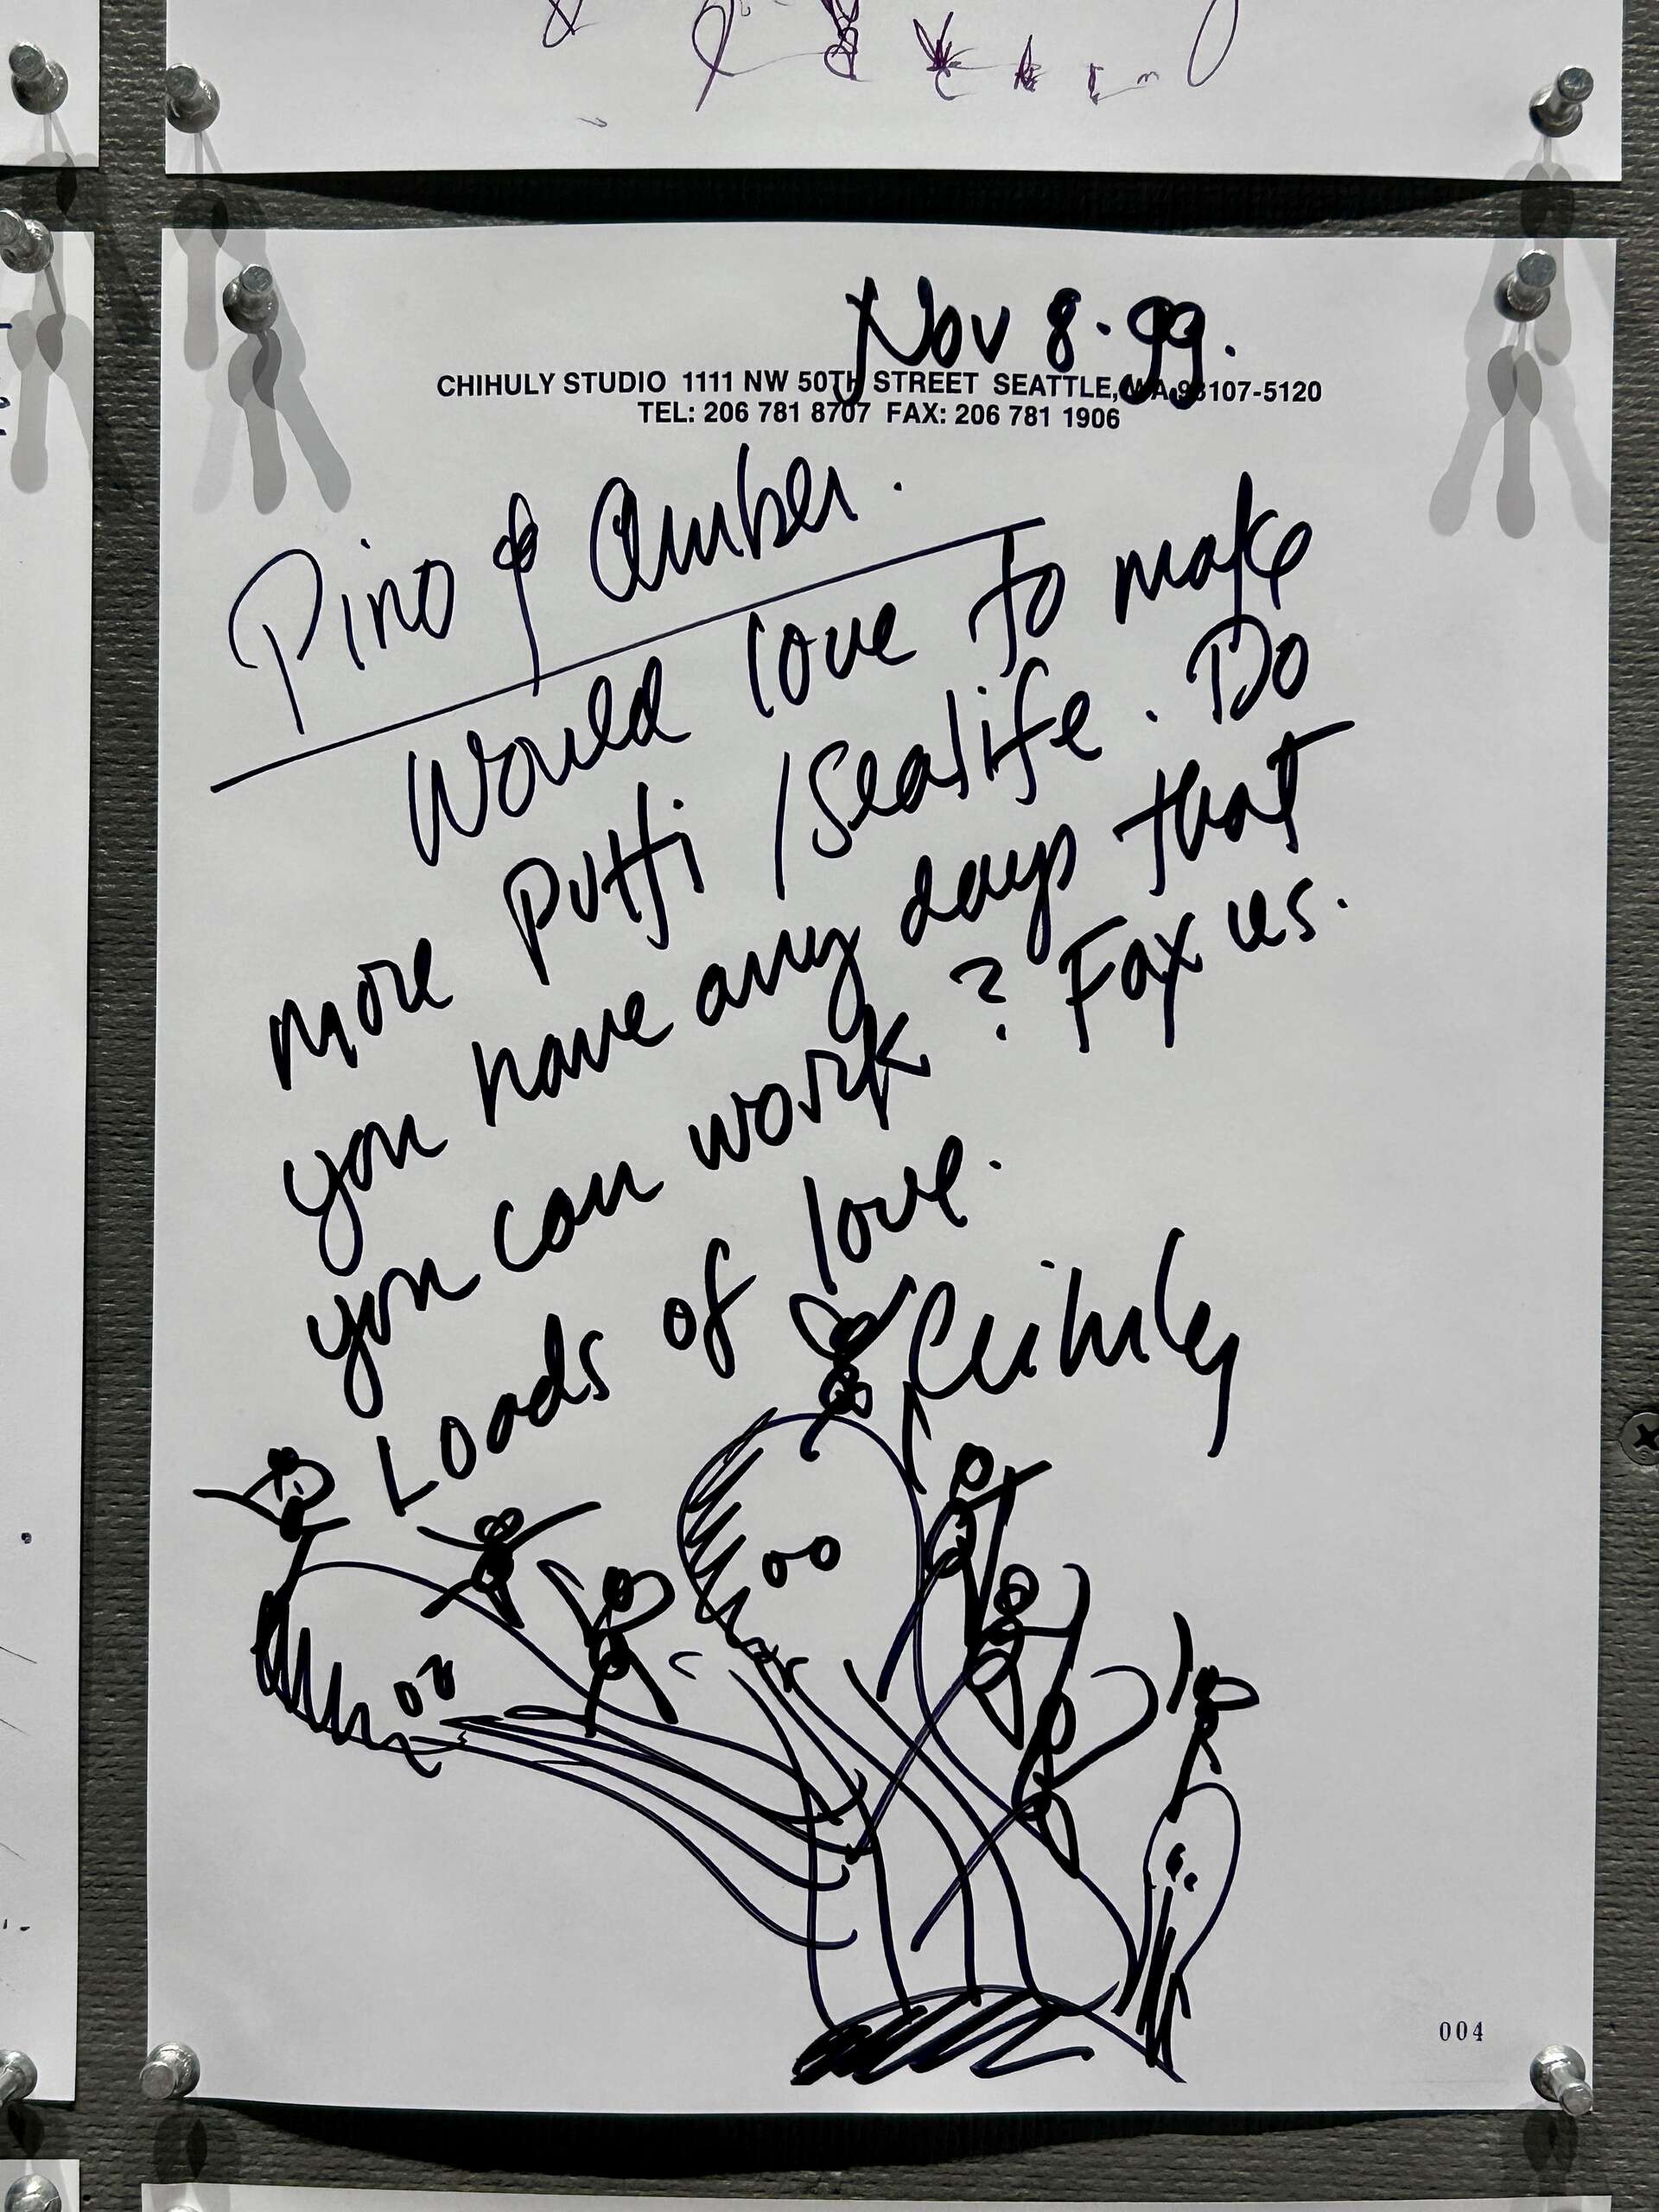 Nov 8·99.
CHIHULY STUDIO 1111 NW 50TH STREET SEATTLE, WA 98107-5120
TEL: 206 781 8707 FAX: 206 781 1906
Pino & Amber.
Would love to make
more Putti / Sealife. Do
you have any days that
you can work? Fax us.
Loads of love.
Chihuly
004